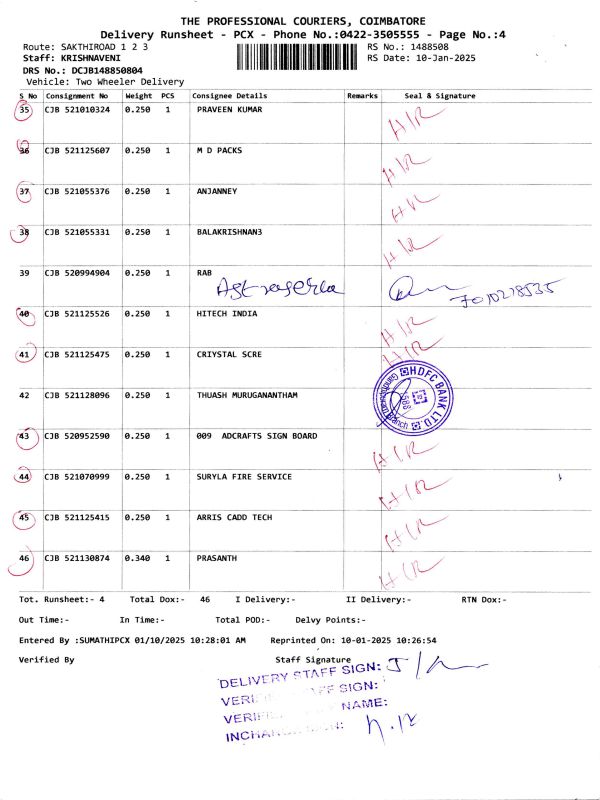 THE PROFESSIONAL COURIERS, COIMBATORE
Delivery Runsheet - PCX - Phone No.:0422-3505555 - Page No.:4
Route: SAKTHIROAD 1 2 3 RS No.: 1488508
Staff: KRISHNAVENI RS Date: 10-Jan-2025
DRS No.: DCJB148850804
Vehicle: Two Wheeler Delivery
S No Consignment No Weight PCS Consignee Details Remarks Seal & Signature
35 CJB 521010324 0.250 1 PRAVEEN KUMAR H/R
36 CJB 521125607 0.250 1 M D PACKS H/R
37 CJB 521055376 0.250 1 ANJANNEY H/R
38 CJB 521055331 0.250 1 BALAKRISHNAN3 H/R
39 CJB 520994904 0.250 1 RAB
40 CJB 521125526 0.250 1 HITECH INDIA H/R
41 CJB 521125475 0.250 1 CRIYSTAL SCRE H/R
42 CJB 521128096 0.250 1 THUASH MURUGANANTHAM HDFC BANK LTD.
43 CJB 520952590 0.250 1 009 ADCRAFTS SIGN BOARD H/R
44 CJB 521070999 0.250 1 SURYLA FIRE SERVICE H/R
45 CJB 521125415 0.250 1 ARRIS CADD TECH H/R
46 CJB 521130874 0.340 1 PRASANTH H/R
Tot. Runsheet:- 4 Total Dox:- 46 I Delivery:- II Delivery:- RTN Dox:-
Out Time:- In Time:- Total POD:- Delvy Points:-
Entered By :SUMATHIPCX 01/10/2025 10:28:01 AM Reprinted On: 10-01-2025 10:26:54
Verified By Staff Signature
DELIVERY STAFF SIGN:
SIGN:
NAME: